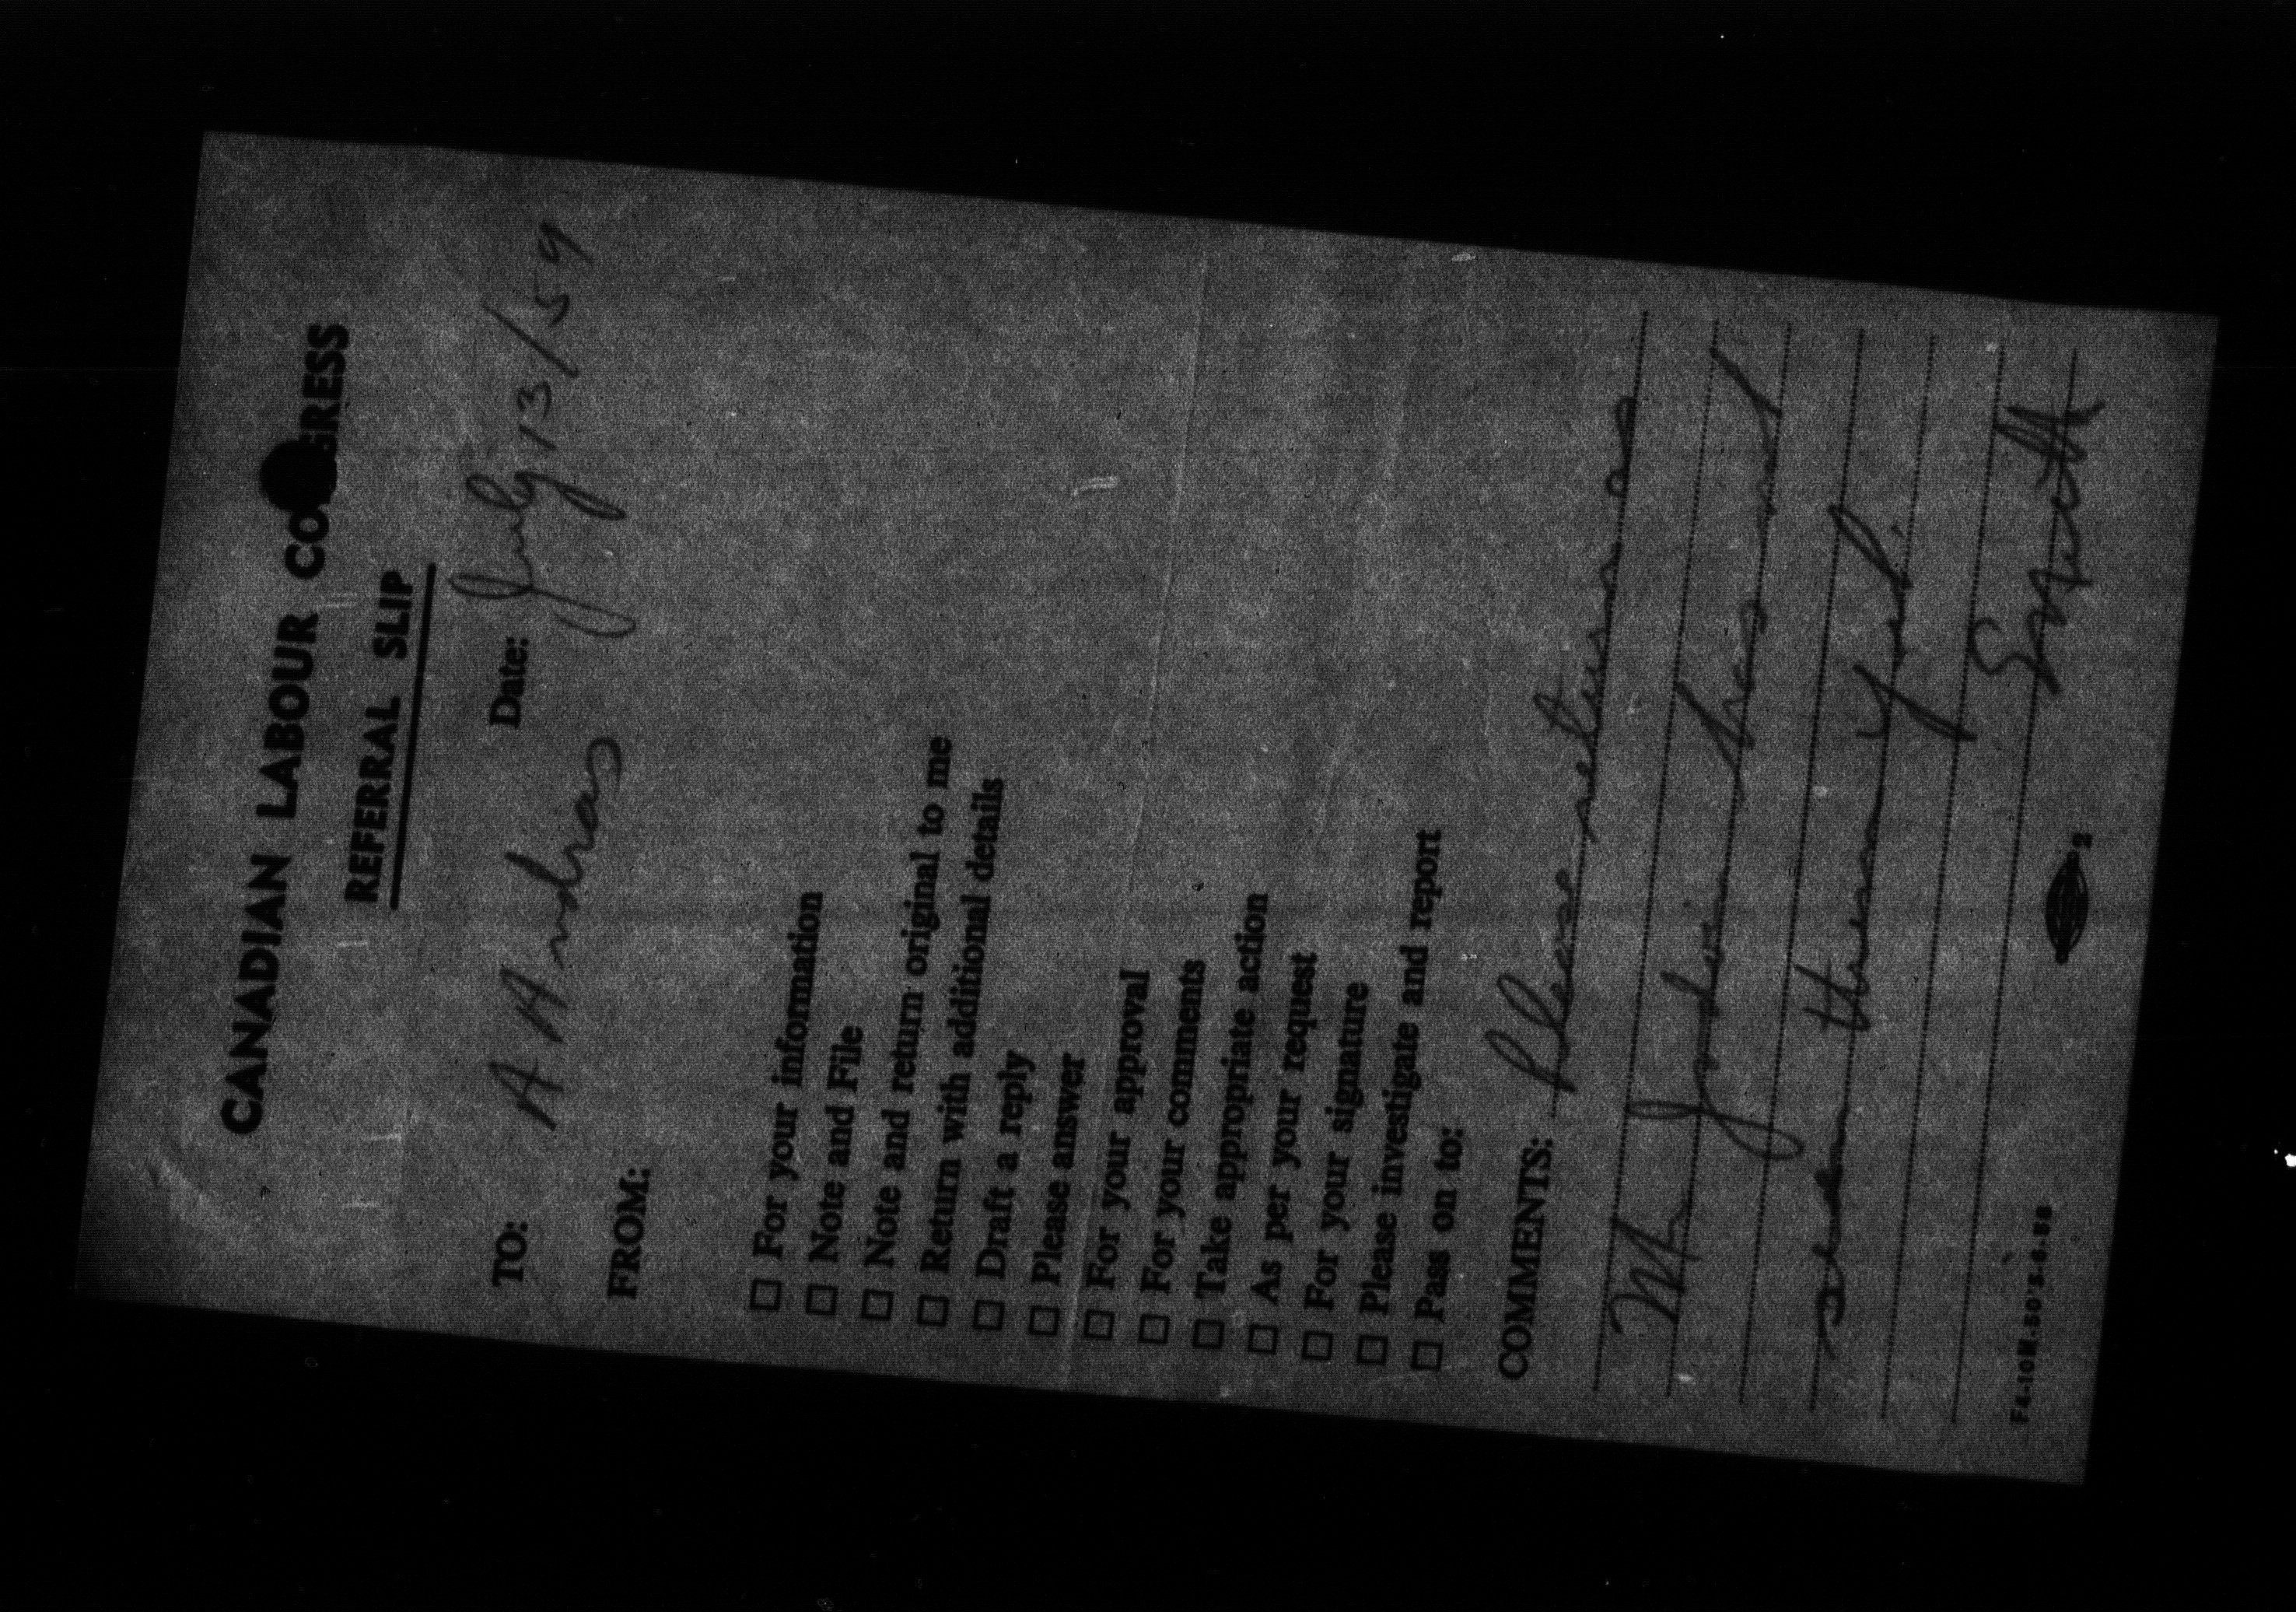 CANADIAN LABOUR CONGRESS
REFERRAL SLIP
TO: A Andras Date: July 13/59
FROM:
☐ For your information
☐ Note and File
☐ Note and return original to me
☐ Return with additional details
☐ Draft a reply
☐ Please answer
☐ For your approval
☐ For your comments
☐ Take appropriate action
☐ As per your request
☐ For your signature
☐ Please investigate and report
☐ Pass on to:
COMMENTS: Please return as
Mr Jodoin has not
seen them yet.
F4-10M-50'S-6-58 2